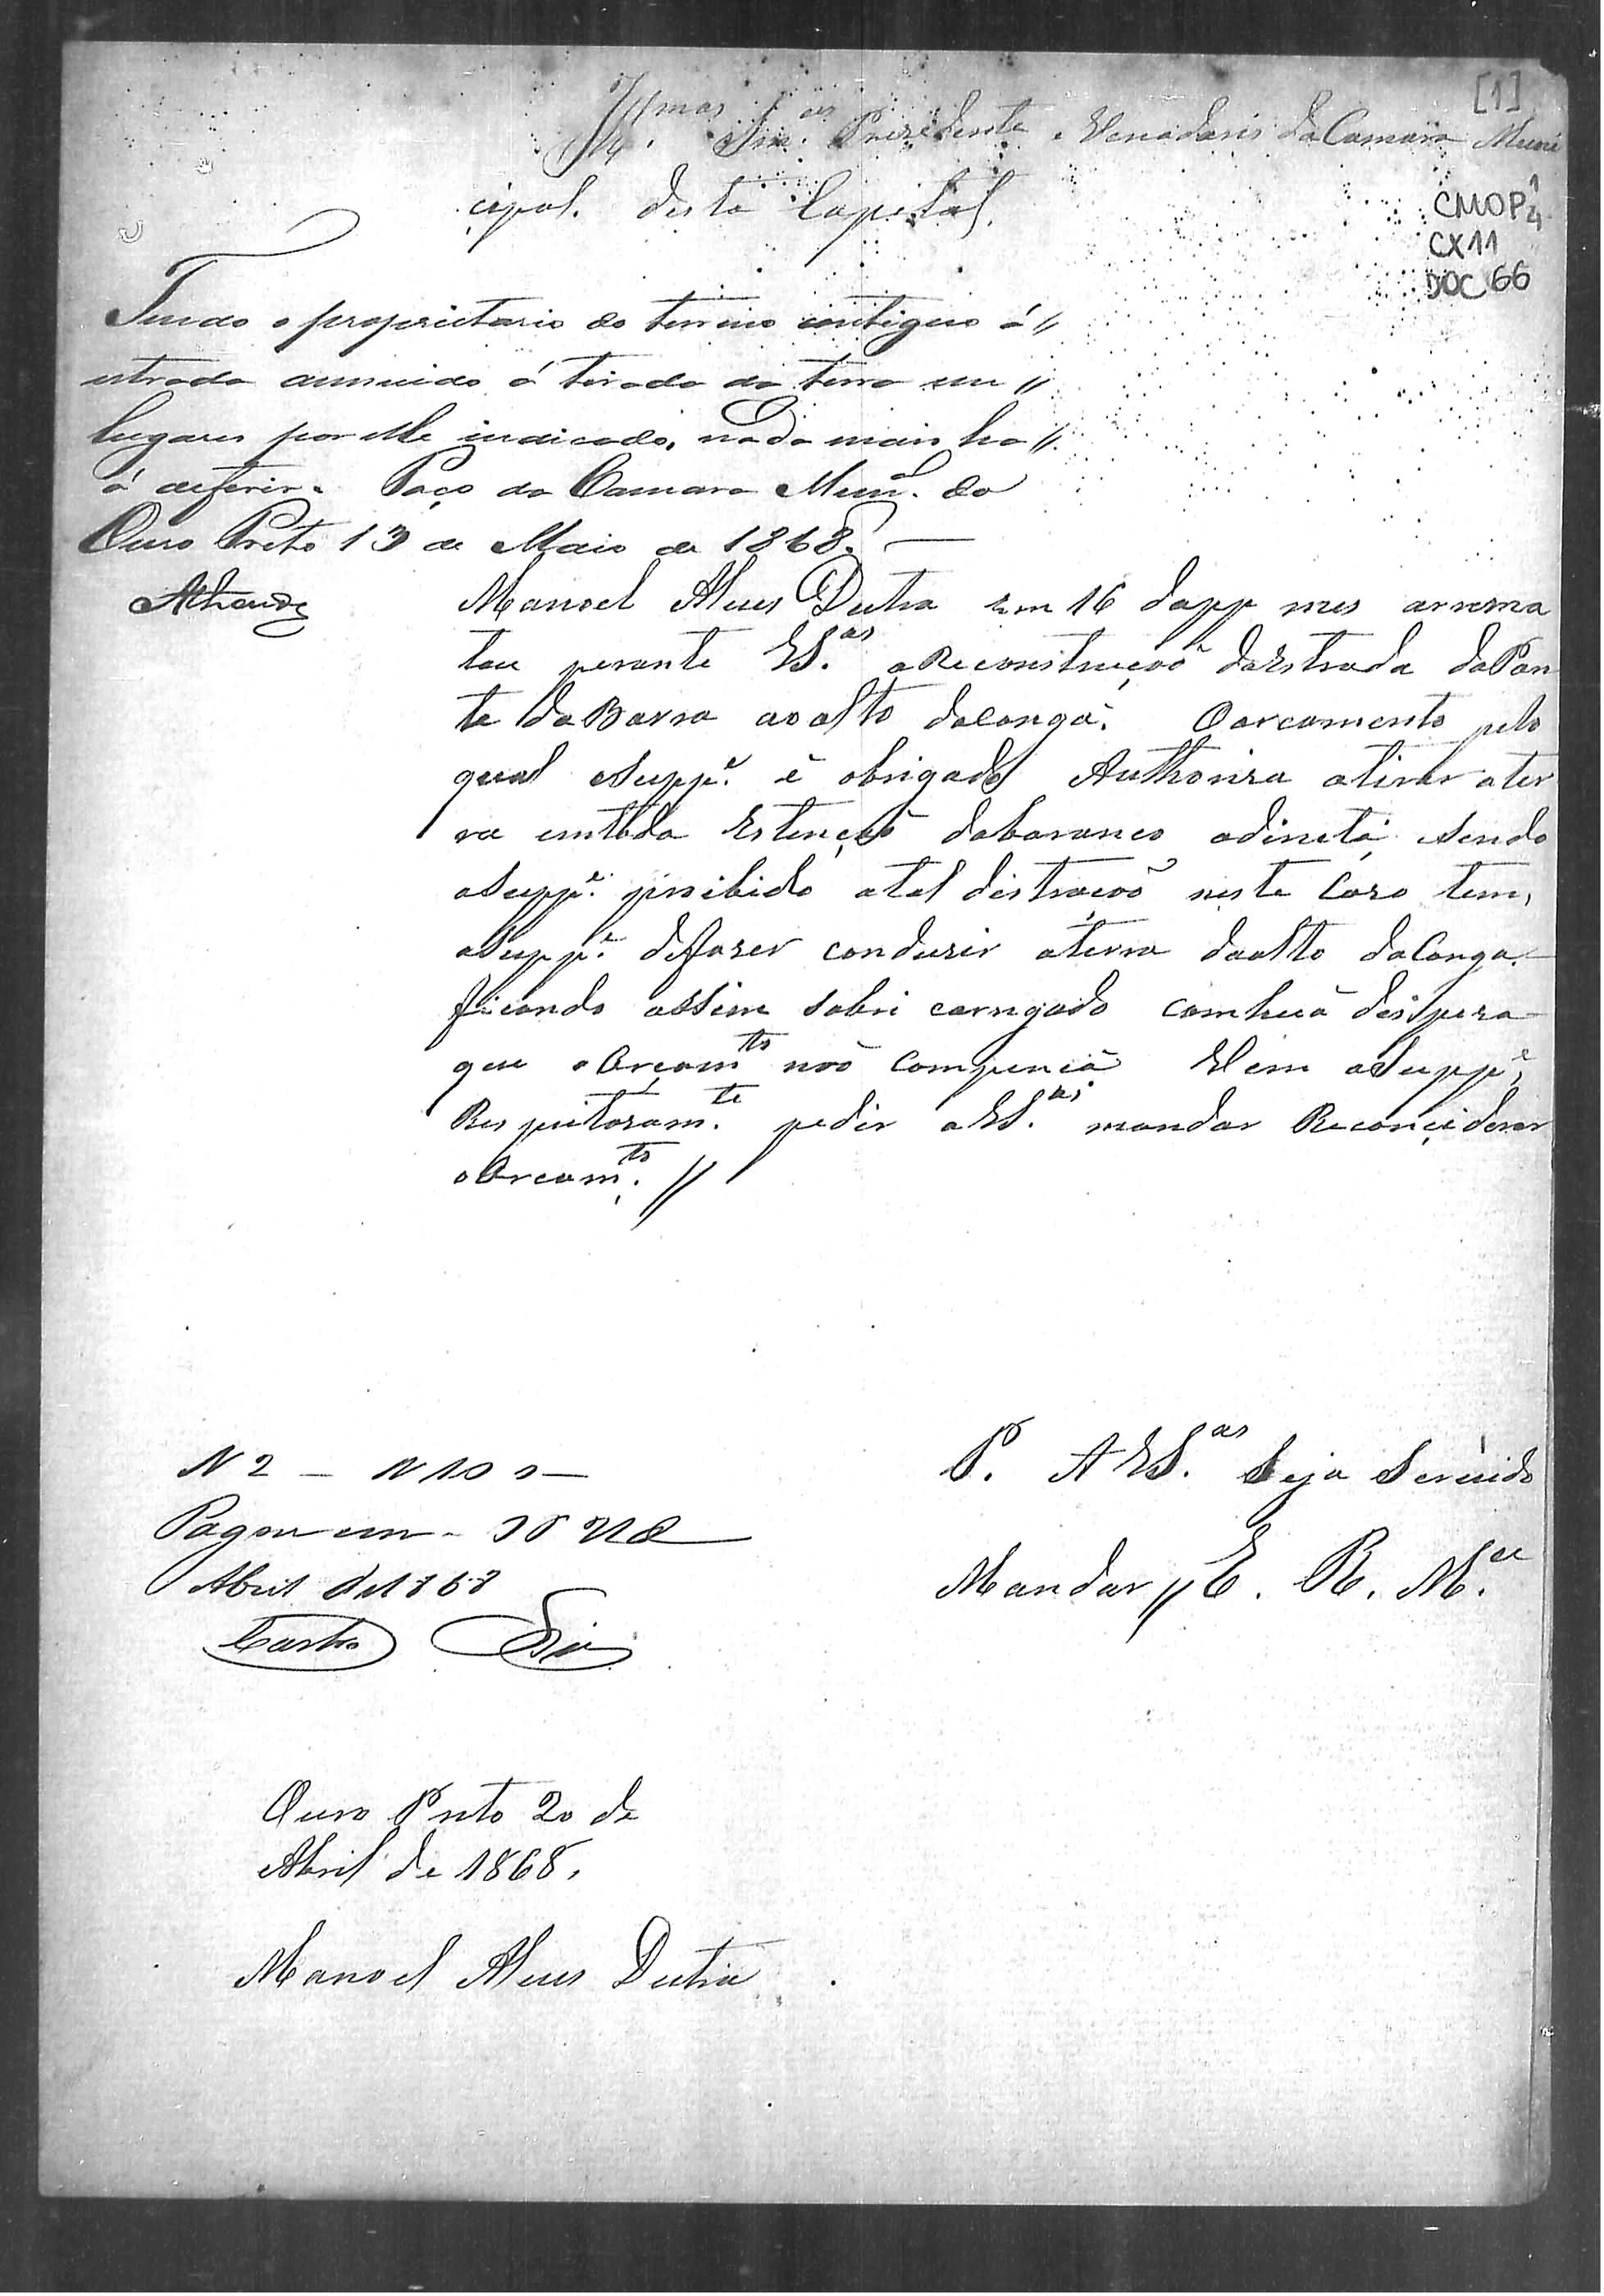 [1]
Illmos Snres Prezidente e Veriadoris da Camara Muni
cipal. desta Capital.
CMOP 1/4
CX11
DOC 66
Tendo o proprietario do terreno contiguo á //
estrada annuido á tirada da terra em //
lugares por elle indicado, nada mais ha //
á deferir. Paço da Camara Munal. do
Ouro Preto 13 de Maio de 1868. —
Manoel Alves Dutra em 16 do pp mes arrema
tou perante VS.as a Reconstrucçoõ da Estrada da Pon
te da Barra ao alto da Conga. O arcamento pelo
qual o Supp.e é obrigado Authoriza a tirar a ter
ra em toda Estençoõ do baranco a direita, sendo
o Supp.e proibido a tal distraçoõ neste Cazo tem,
o Supp.e de fazer conduzir a terra do alto da Conga.
ficando assim sobri carregado com huã dispeza
que o Arcamto noõ Compença Vem o Supp.e,
Respeitozam.te pedir a VS.as mandar Reconçiderar
o Arcamto. //
P. A VS.as Seja Servido
Mandar // E. R. M.ce
N 2 — 100 —
Pagou em
Abril de 1868
Castro
Ouro Preto 20 de
Abril de 1868.
Manoel Alves Dutra